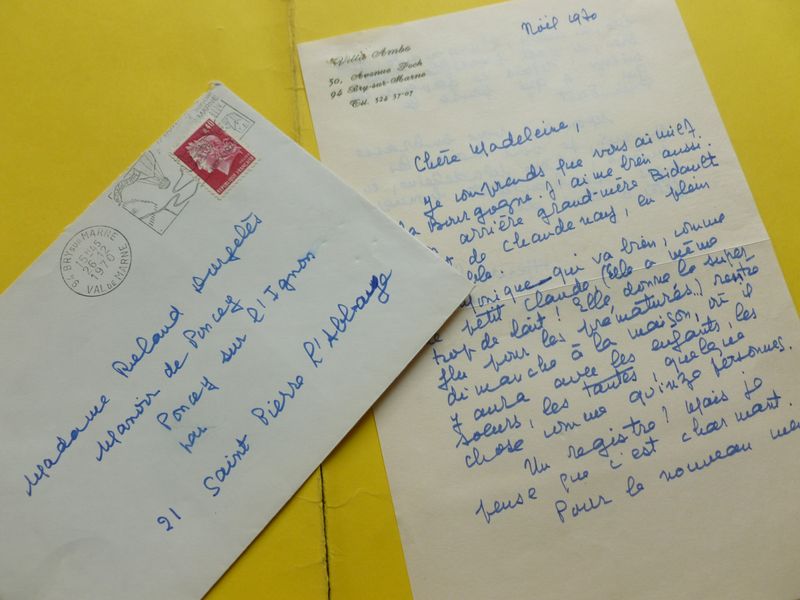 Madame Roland Dorgelès
Manoir de Poncey
Poncey sur l'Ignon
par
21 Saint Pierre l'Abbaye
94 BRY SUR MARNE
15H45
26-12
1970
VAL DE MARNE
0,40
REPUBLIQUE FRANCAISE
Willis Ambo
50, Avenue Foch
94 Bry-sur-Marne
Tél. 526 37-07
Noël 1970
Chère Madeleine,
Je comprends que vous aimiez
la Bourgogne. J'aime bien aussi.
arrière grand-mère Bidault
de Chaudenay, en plein
Monique qui va bien, comme
le petit Claude, (elle a même
trop de lait ! Elle donne le super
flu pour les prématurés...) rentre
dimanche à la maison, où il
y aura avec les enfants, les
soeurs, les tantes, quelque
chose comme quinze personnes.
Un registre ? Mais je
pense que c'est charmant.
Pour le nouveau